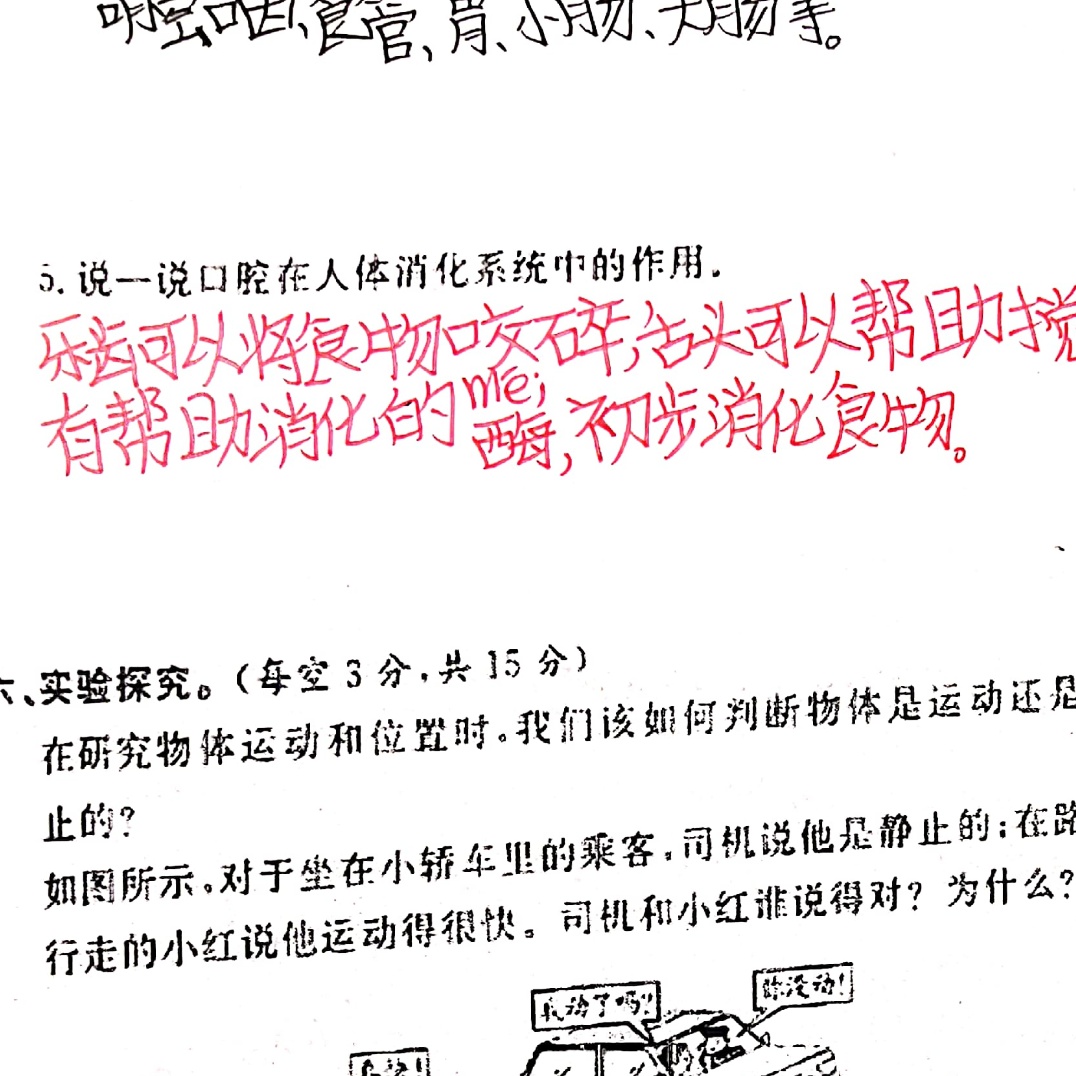 咽、食官、胃、小肠、大肠等。
5.说一说口腔在人体消化系统中的作用.
牙齿可以将食物咬碎,舌头可以帮助搅
有帮助消化的酶,初步消化食物。
mei
六、实验探究。(每空3分,共15分)
在研究物体运动和位置时。我们该如何判断物体是运动还是
止的?
如图所示。对于坐在小轿车里的乘客,司机说他是静止的;在路
行走的小红说他运动得很快。司机和小红谁说得对?为什么?
我动了吗? 你没动!